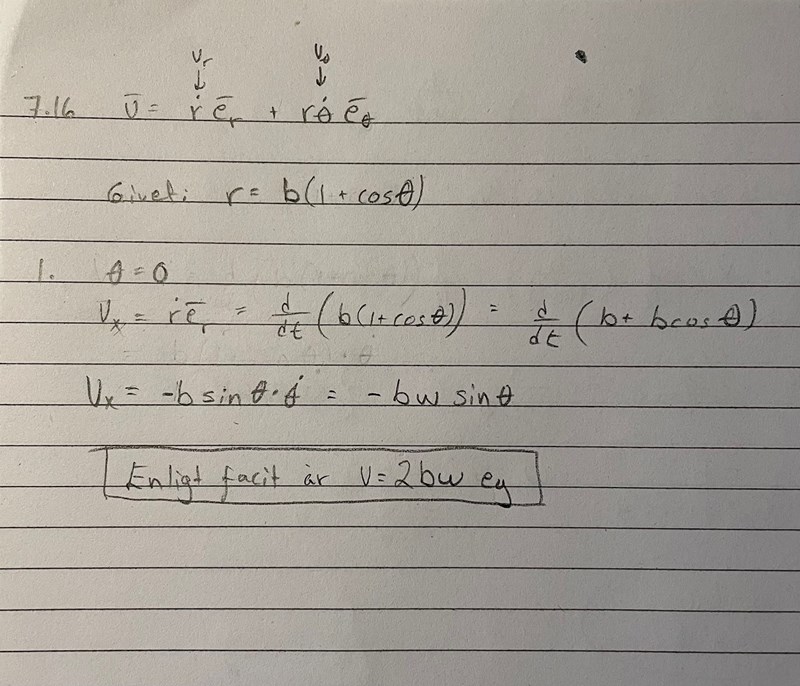 Vr Vθ
↓ ↓
7.16 v̄ = ṙ ēr + rθ̇ ēθ
Givet: r = b(1 + cosθ)
1. θ = 0
Vx = ṙ ēr = d/dt (b(1+cosθ)) = d/dt (b + b cosθ)
Vx = -b sinθ · θ̇ = - bω sinθ
Enligt facit är V = 2bω ey